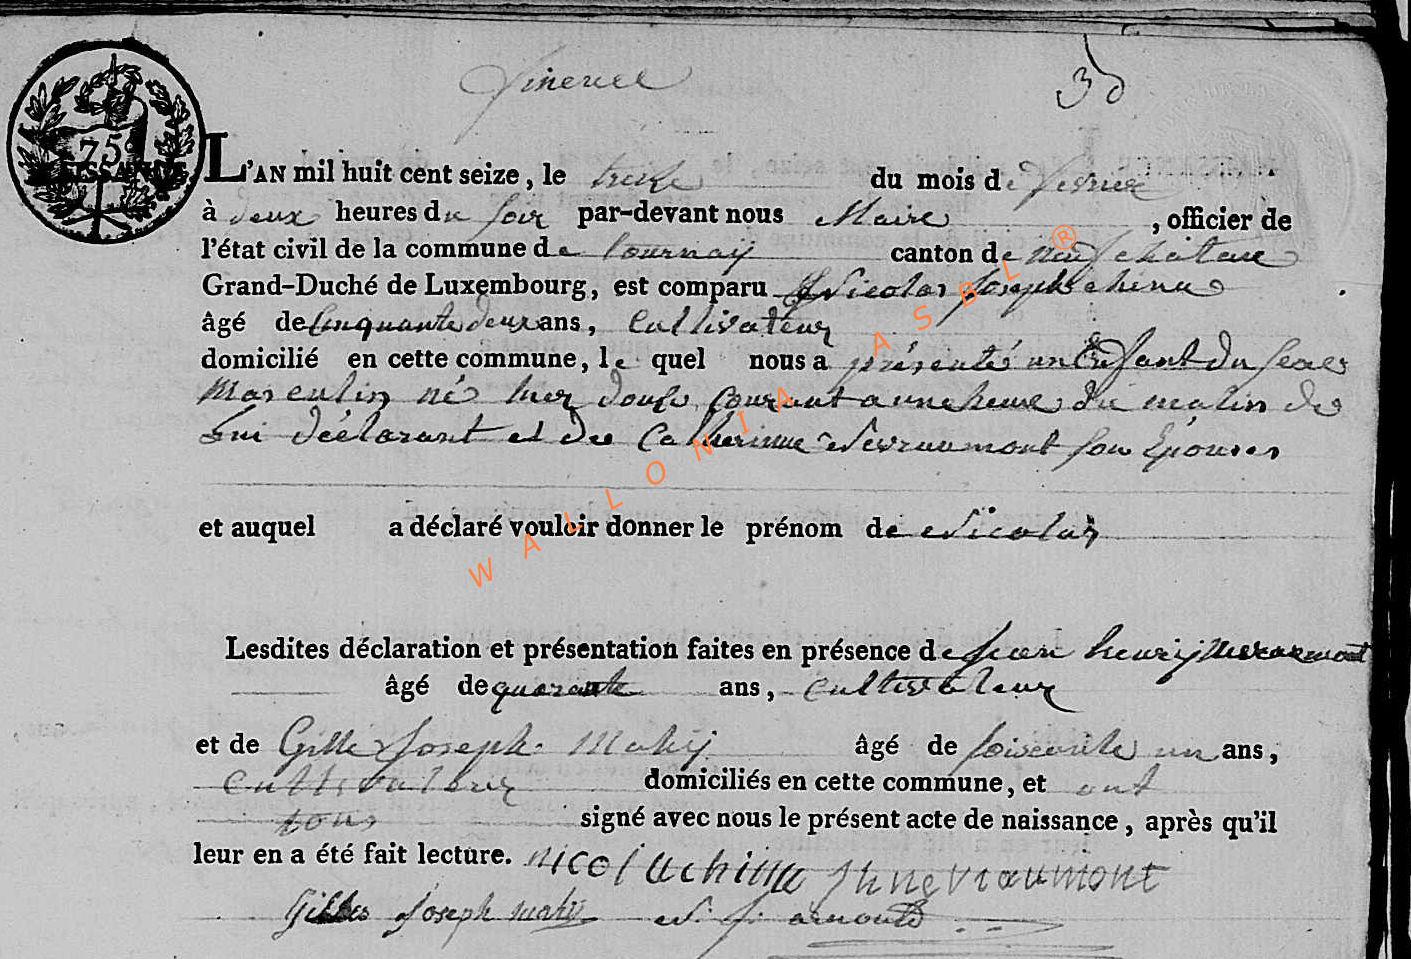 35
75
NAISSANCES.
L'AN mil huit cent seize, le treize du mois de fevrier
à deux heures du soir par-devant nous Maire , officier de
l'état civil de la commune de tournay canton de neufchateau
Grand-Duché de Luxembourg, est comparu Nicolas Joseph chinu
âgé de Cinquante deux ans, Cultivateur
domicilié en cette commune, le quel nous a présenté un Enfant du sexe
Masculin né hier douze Courant a une heure du matin de
Lui déclarant et de Catherinne Nevraumont son Epouse
et auquel a déclaré vouloir donner le prénom de Nicolas
Lesdites déclaration et présentation faites en présence de jean henrij Nevraumont
âgé de quarante ans, Cultivateur
et de Gille Joseph Mahij âgé de soixante un ans,
Cultivateur domiciliés en cette commune, et ont
tous signé avec nous le présent acte de naissance, après qu'il
leur en a été fait lecture. nicola chinu J h nevraumont
Gilles Joseph mahy N. J. arnould
WALLONIA ASBL ®